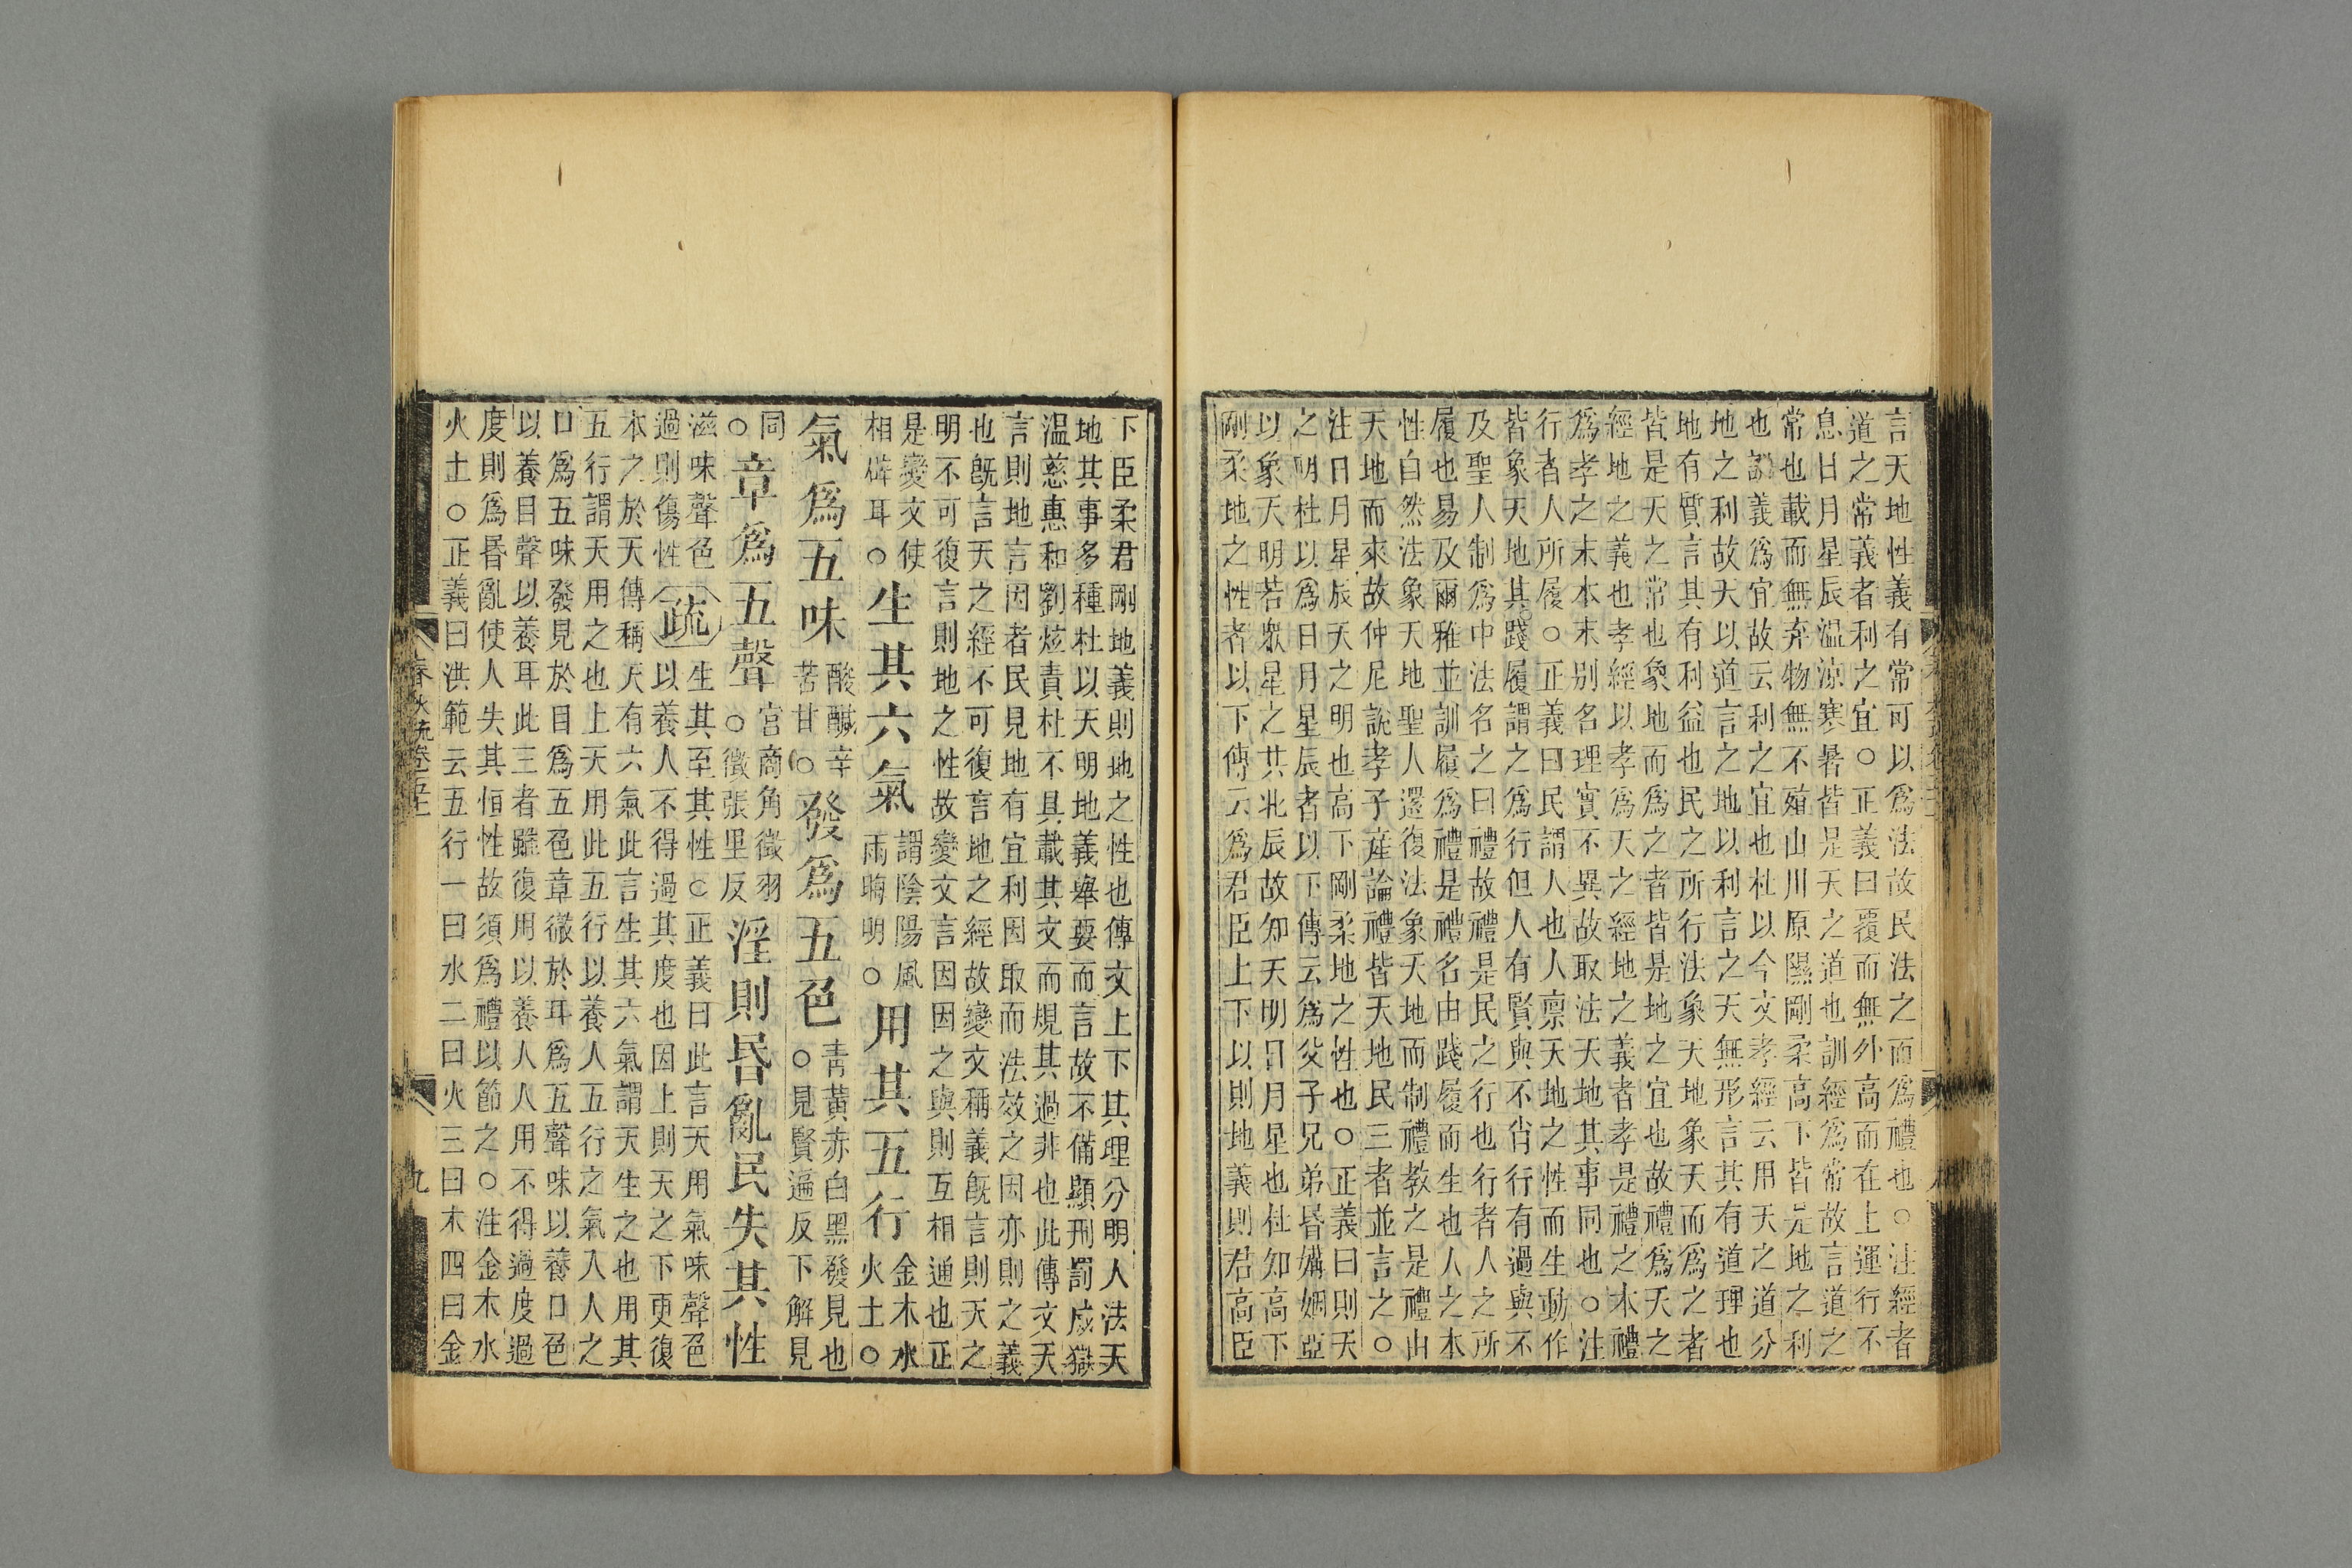 言天地性義有常可以爲法故民法之而爲禮也○注經者
道之常義者利之宜○正義曰覆而無外高而在上運行不
息日月星辰温涼寒暑皆是天之道也訓經爲常故言道之
常也載而無弃物無不殖山川原隰剛柔高下皆是地之利
也訓義爲宜故云利之宜也杜以今文孝經云用天之道分
地之利故天以道言之地以利言之天無形言其有道理也
地有質言其有利益也民之所行法象天地象天而爲之者
皆是天之常也象地而爲之者皆是地之宜也故禮爲天之
經地之義也孝經以孝爲天之經地之義者孝是禮之本禮
爲孝之末本末别名理實不異故取法天地其事同也○注
行者人所履○正義曰民謂人也人稟天地之性而生動作
皆象天地其踐履謂之爲行但人有賢與不肖行有過與不
及聖人制爲中法名之曰禮故禮是民之行也行者人之所
履也易及爾雅並訓履爲禮是禮名由踐履而生也人之本
性自然法象天地聖人還復法象天地而制禮教之是禮由
天地而來故仲尼說孝子産論禮皆天地民三者並言之○
注日月星辰天之明也高下剛柔地之性也○正義曰則天
之明杜以爲日月星辰者以下傳云爲父子兄弟昏媾姻亞
以象天明若衆星之共北辰故知天明日月星也杜知高下
剛柔地之性者以下傳云爲君臣上下以則地義則君高臣
下臣柔君剛地義則地之性也傳文上下其理分明人法天
地其事多種杜以天明地義舉要而言故不備顯刑罰威獄
温慈惠和劉炫責杜不具載其文而規其過非也此傳文天
言則地言因者民見地有宜利因取而法效之因亦則之義
也既言天之經不可復言地之經故變文稱義既言則天之
明不可復言則地之性故變文言因因之與則互相通也正
是變文使相辟耳○生其六氣謂陰陽風雨晦明○用其五行金木水火土○
氣爲五味酸鹹辛苦甘○發爲五色青黃赤白黑發見也○見賢遍反下解見
同○章爲五聲宮商角徵羽○徵張里反淫則昏亂民失其性
滋味聲色過則傷性疏生其至其性○正義曰此言天用氣味聲色以養人不得過其度也因上則天之下更復
本之於天傳稱天有六氣此言生其六氣謂天生之也用其
五行謂天用之也上天用此五行以養人五行之氣入人之
口爲五味發見於目爲五色章徹於耳爲五聲味以養口色
以養目聲以養耳此三者雖復用以養人人用不得過度過
度則爲昏亂使人失其恒性故須爲禮以節之○注金木水
火土○正義曰洪範云五行一曰水二曰火三曰木四曰金
春秋疏卷五十一
九